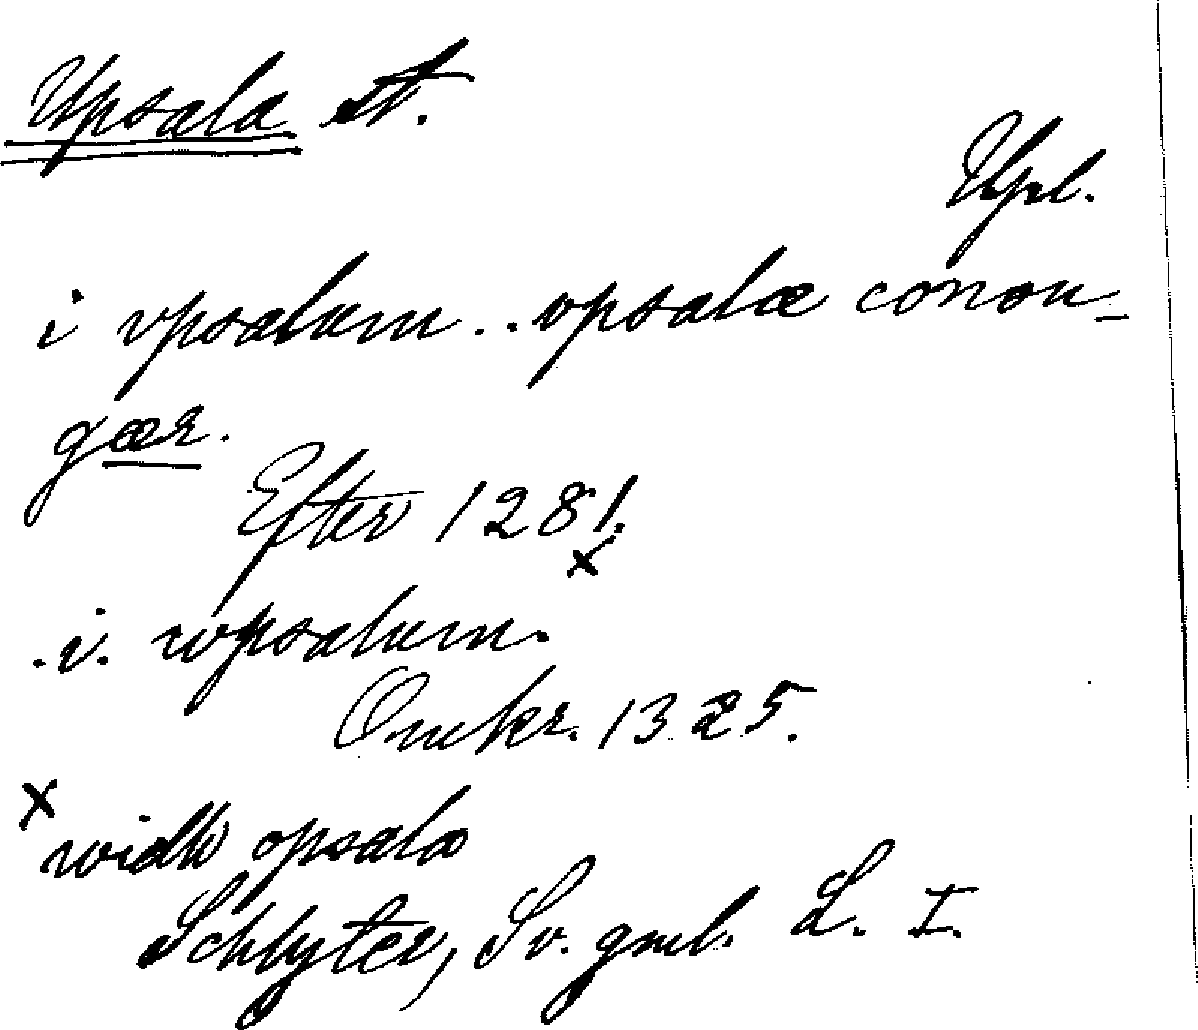 Upsala st.
Upl.
i vpsalum .. opsalæ conon-
gær.
Efter 1281.
x
.i. wpsalum.
Omkr. 1325.
x
widh opsala
Schlyter, Sv. gml. L. I.